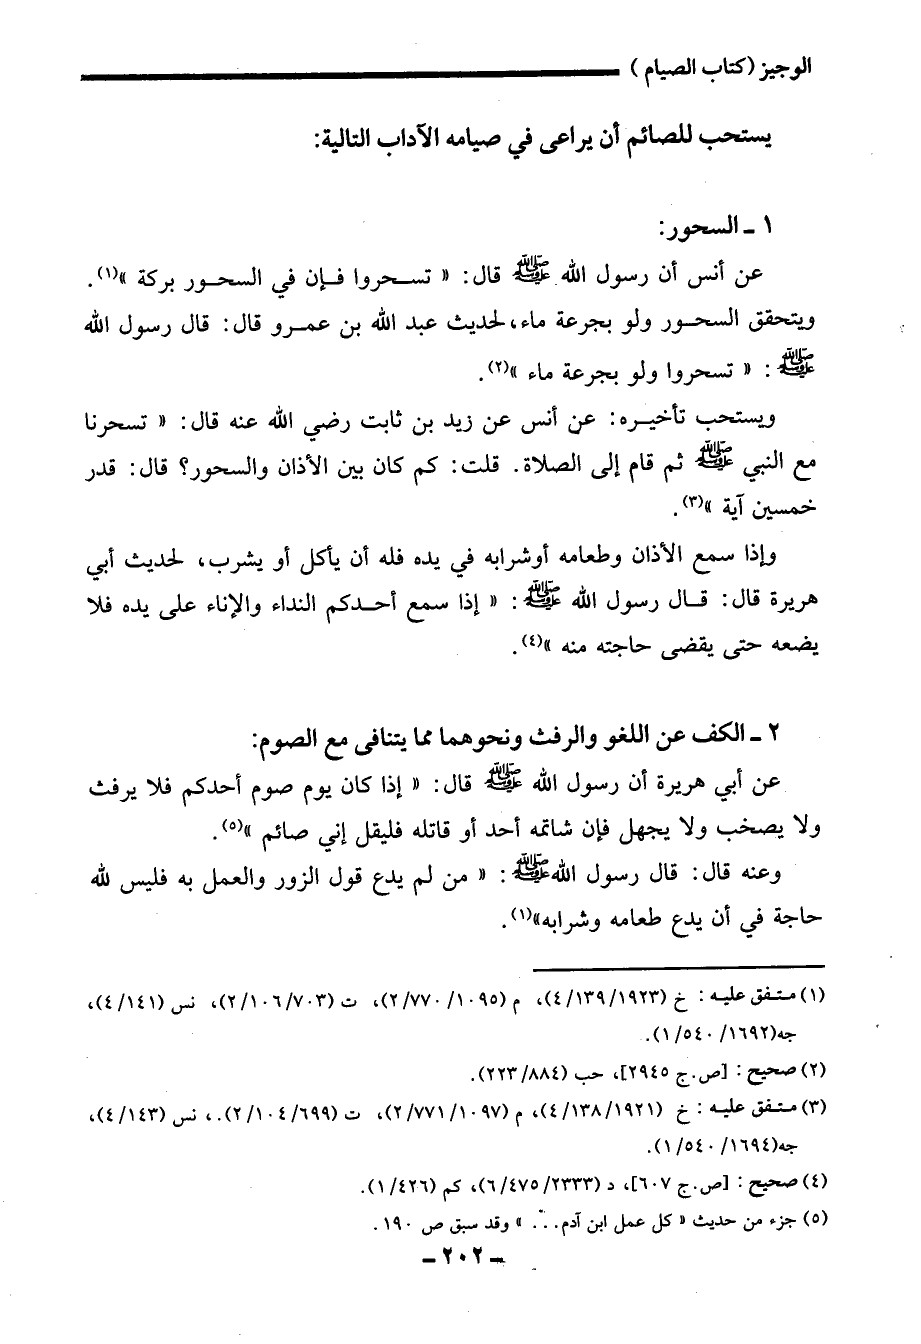 الوجيز (كتاب الصيام )
يستحب للصائم أن يراعى في صيامه الآداب التالية:
١ ـ السحور:
عن أنس أن رسول الله ﷺ قال: « تسحروا فإن في السحور بركة »(١).
ويتحقق السحور ولو بجرعة ماء، لحديث عبد الله بن عمرو قال: قال رسول الله
ﷺ : « تسحروا ولو بجرعة ماء »(٢).
ويستحب تأخيره: عن أنس عن زيد بن ثابت رضي الله عنه قال: « تسحرنا
مع النبي ﷺ ثم قام إلى الصلاة. قلت: كم كان بين الأذان والسحور؟ قال: قدر
خمسين آية »(٣).
وإذا سمع الأذان وطعامه أوشرابه في يده فله أن يأكل أو يشرب، لحديث أبي
هريرة قال: قال رسول الله ﷺ : « إذا سمع أحدكم النداء والإناء على يده فلا
يضعه حتى يقضى حاجته منه »(٤).
٢ ـ الكف عن اللغو والرفث ونحوهما مما يتنافى مع الصوم:
عن أبي هريرة أن رسول الله ﷺ قال: « إذا كان يوم صوم أحدكم فلا يرفث
ولا يصخب ولا يجهل فإن شاتمه أحد أو قاتله فليقل إني صائم »(٥).
وعنه قال: قال رسول الله ﷺ : « من لم يدع قول الزور والعمل به فليس لله
حاجة في أن يدع طعامه وشرابه»(١).
(١) متفق عليه : خ (٤/١٣٩/١٩٢٣)، م (٢/٧٧٠/١٠٩٥)، ت (٢/١٠٦/٧٠٣)، نس (٤/١٤١)،
جه(١/٥٤٠/١٦٩٢).
(٢) صحيح : [ص.ج ٢٩٤٥]، حب (٢٢٣/٨٨٤).
(٣) متفق عليه : خ (٤/١٣٨/١٩٢١)، م (٢/٧٧١/١٠٩٧)، ت (٢/١٠٤/٦٩٩).، نس (٤/١٤٣)،
جه(١/٥٤٠/١٦٩٤).
(٤) صحيح : [ص.ج ٦٠٧]، د (٦/٤٧٥/٢٣٣٣)، كم (١/٤٢٦).
(٥) جزء من حديث « كل عمل ابن آدم... » وقد سبق ص ١٩٠.
ـ ٢٠٢ ـ